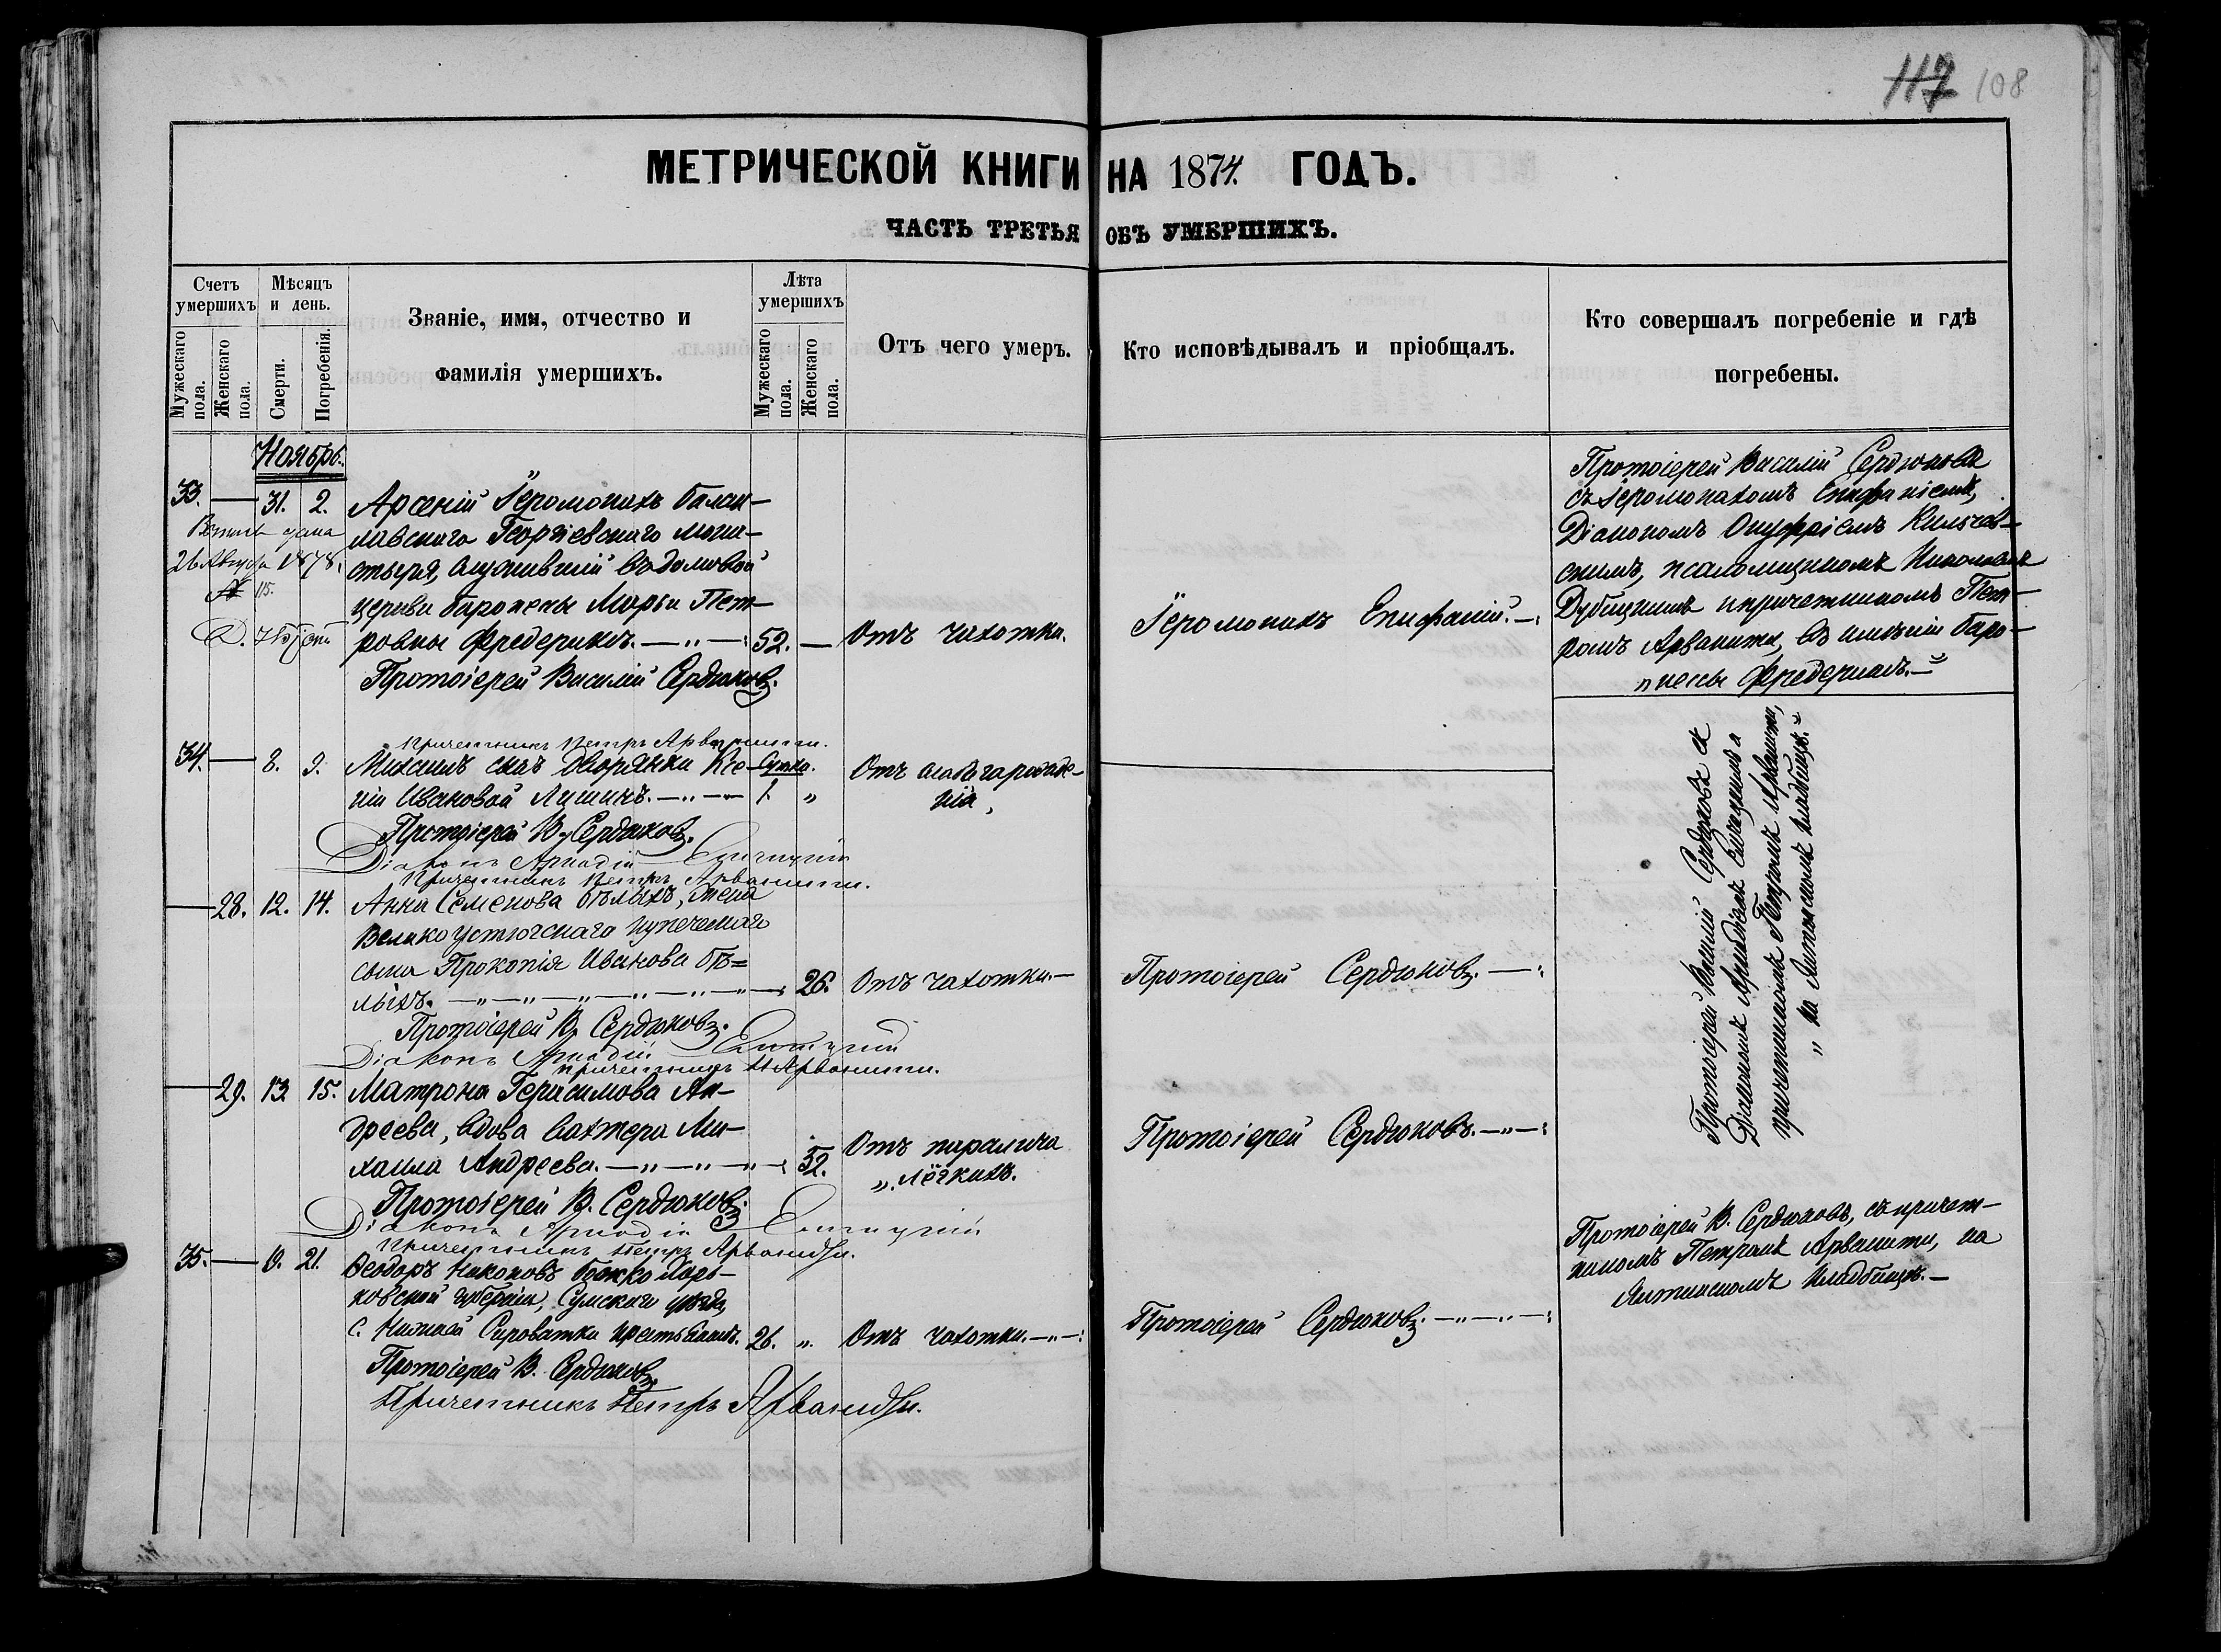 117 108
МЕТРИЧЕСКОЙ КНИГИ НА 1874. ГОДЪ.
ЧАСТЬ ТРЕТЬЯ ОБЪ УМЕРШИХЪ.
Счетъ умершихъ
Мужескаго пола.
Женскаго пола.
Мѣсяцъ и день.
Смерти.
Погребенія.
Званіе, имя, отчество и
фамилія умершихъ.
Лѣта умершихъ
Мужескаго пола.
Женскаго пола.
Отъ чего умеръ.
Кто исповѣдывалъ и пріобщалъ.
Кто совершалъ погребеніе и гдѣ
погребены.
Ноябрь.
33. — 31. 2. Арсеній Іеромонахъ балак-
лавскаго Георгіевскаго мона-
стыря, служившій въ домовой
церкви баронессы Марьи Пет-
ровны Фредериксъ. 52. — Отъ чахотки.
26 Августа 1878.
№ 115.
Протоіерей Василій Сердюковъ.
Іеромонахъ Епифаній.
Протоіерей Василій Сердюковъ
съ Іеромонахомъ Епифаніемъ,
Діакономъ Онуфріемъ Кильчев-
скимъ, псаломщикомъ Николаемъ
Дубицкимъ и причетникомъ Пет-
ромъ Арванити, въ имѣніи баро-
нессы Фредериксъ.
Причетникъ Петръ Арванити.
34. — 8. 9. Михаилъ сынъ дворянки Ксе-
ніи Ивановой Лишинъ. Сутки. 1. „ Отъ слабаго рожде-
нія,
Протоіерей В. Сердюковъ.
Діаконъ Аркадій
Причетникъ Петръ Арванити.
— 28. 12. 14. Анна Семенова Бѣлыхъ, жена
Великоустюгскаго купеческаго
сына Прокопія Иванова Бѣ=
лыхъ. 26. Отъ чахотки.
Протоіерей Сердюковъ.
Протоіерей В. Сердюковъ.
Діаконъ Аркадій
Причетникъ П. Арванити.
— 29. 13. 15. Матрона Герасимова Ан-
дреева, вдова вахтера Ми-
хаила Андреева. 52. Отъ паралича
„ лёгкихъ.
Протоіерей Сердюковъ.
Протоіерей В. Сердюковъ.
Діаконъ Аркадій
Причетникъ Петръ Арваниди.
Протоіерей Василій Сердюковъ съ
Діакономъ Аркадіемъ и
причетникомъ Петромъ Арванити,
„ на Аутинскомъ кладбищѣ.
35. — 19. 21. Ѳеодоръ Никоновъ Божко Харь-
ковской губерніи, Сумскаго уѣзда,
с. Нижней Сироватки крестьянинъ. 26. „ Отъ чахотки.
Протоіерей Сердюковъ.
Протоіерей В. Сердюковъ, съ причет-
никомъ Петромъ Арванити, на
Аутинскомъ кладбищѣ.
Протоіерей В. Сердюковъ.
Причетникъ Петръ Арваниди.